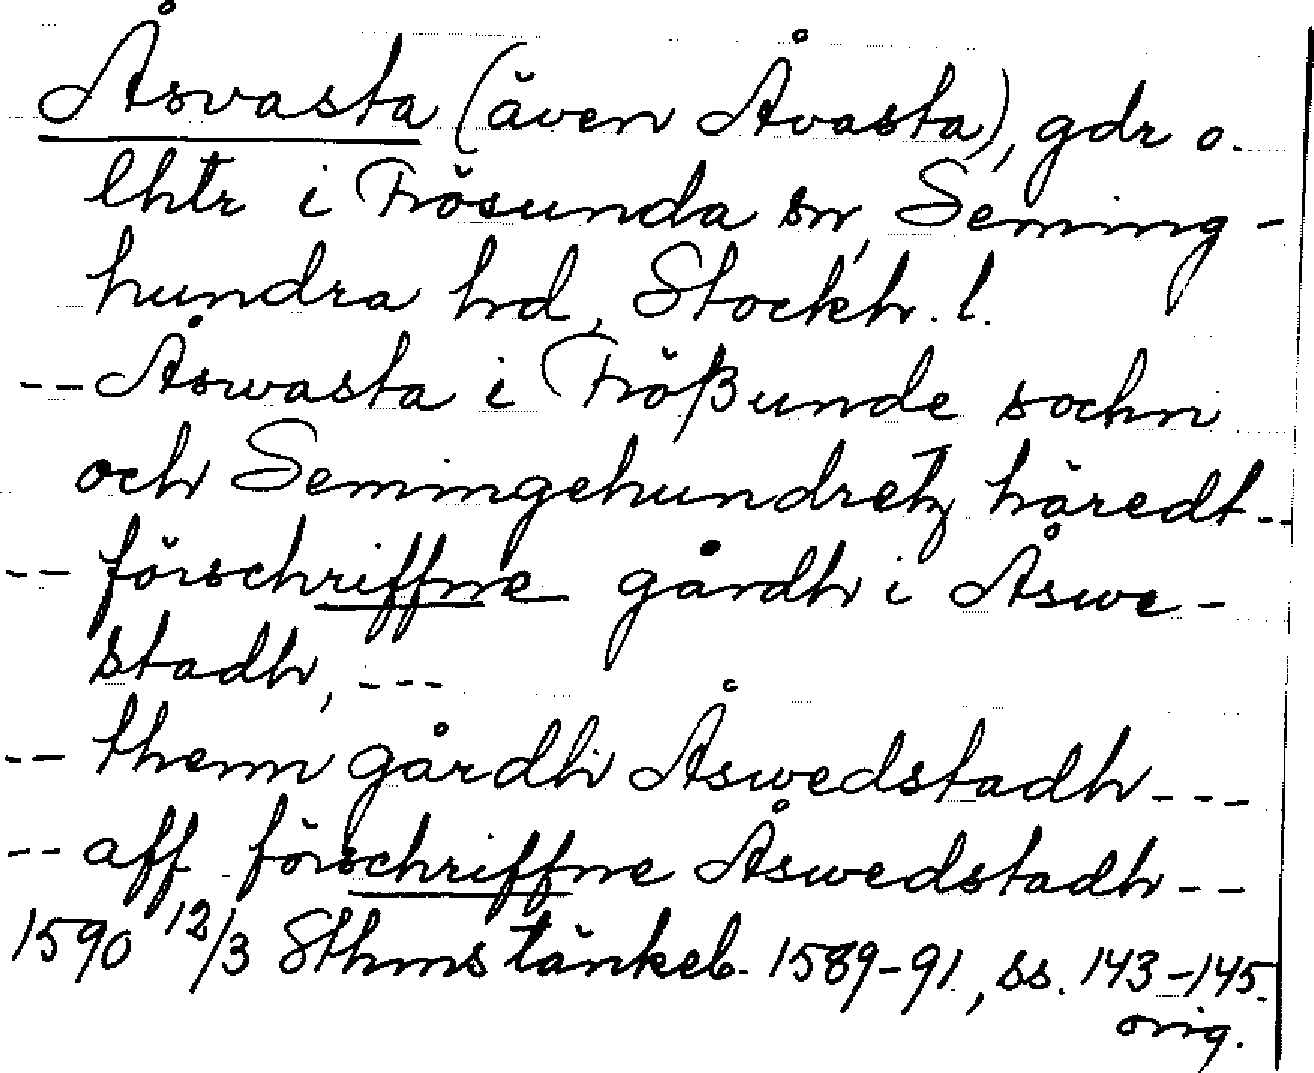 Åsvasta (även Åvasta), gdr o.
lhtr i Frösunda sn, Seming-
hundra hd, Stockh. l.
-- Åswasta i Frößunde sochn
och Semingehundretz häredt --
-- förschriffne gårdh i Åswe-
stadh, ---
-- thenn gårdh Åswedstadh ---
-- aff förschriffne Åswedstadh --
1590 12/3 Sthms tänkeb. 1589-91, ss. 143-145.
orig.